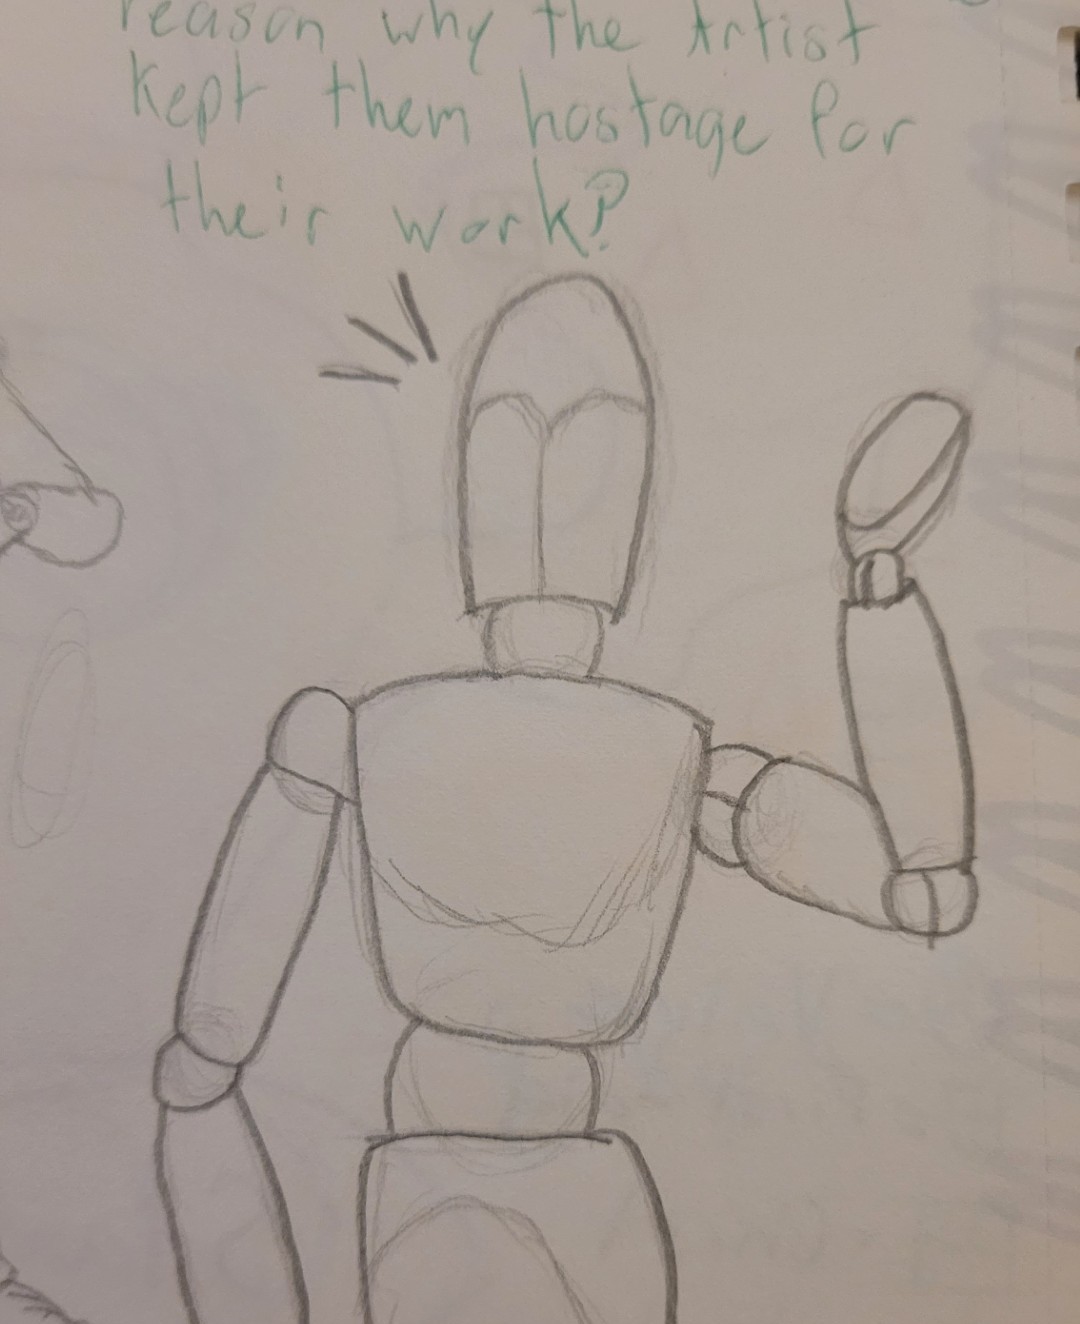 reason why the Artist
kept them hostage for
their work?